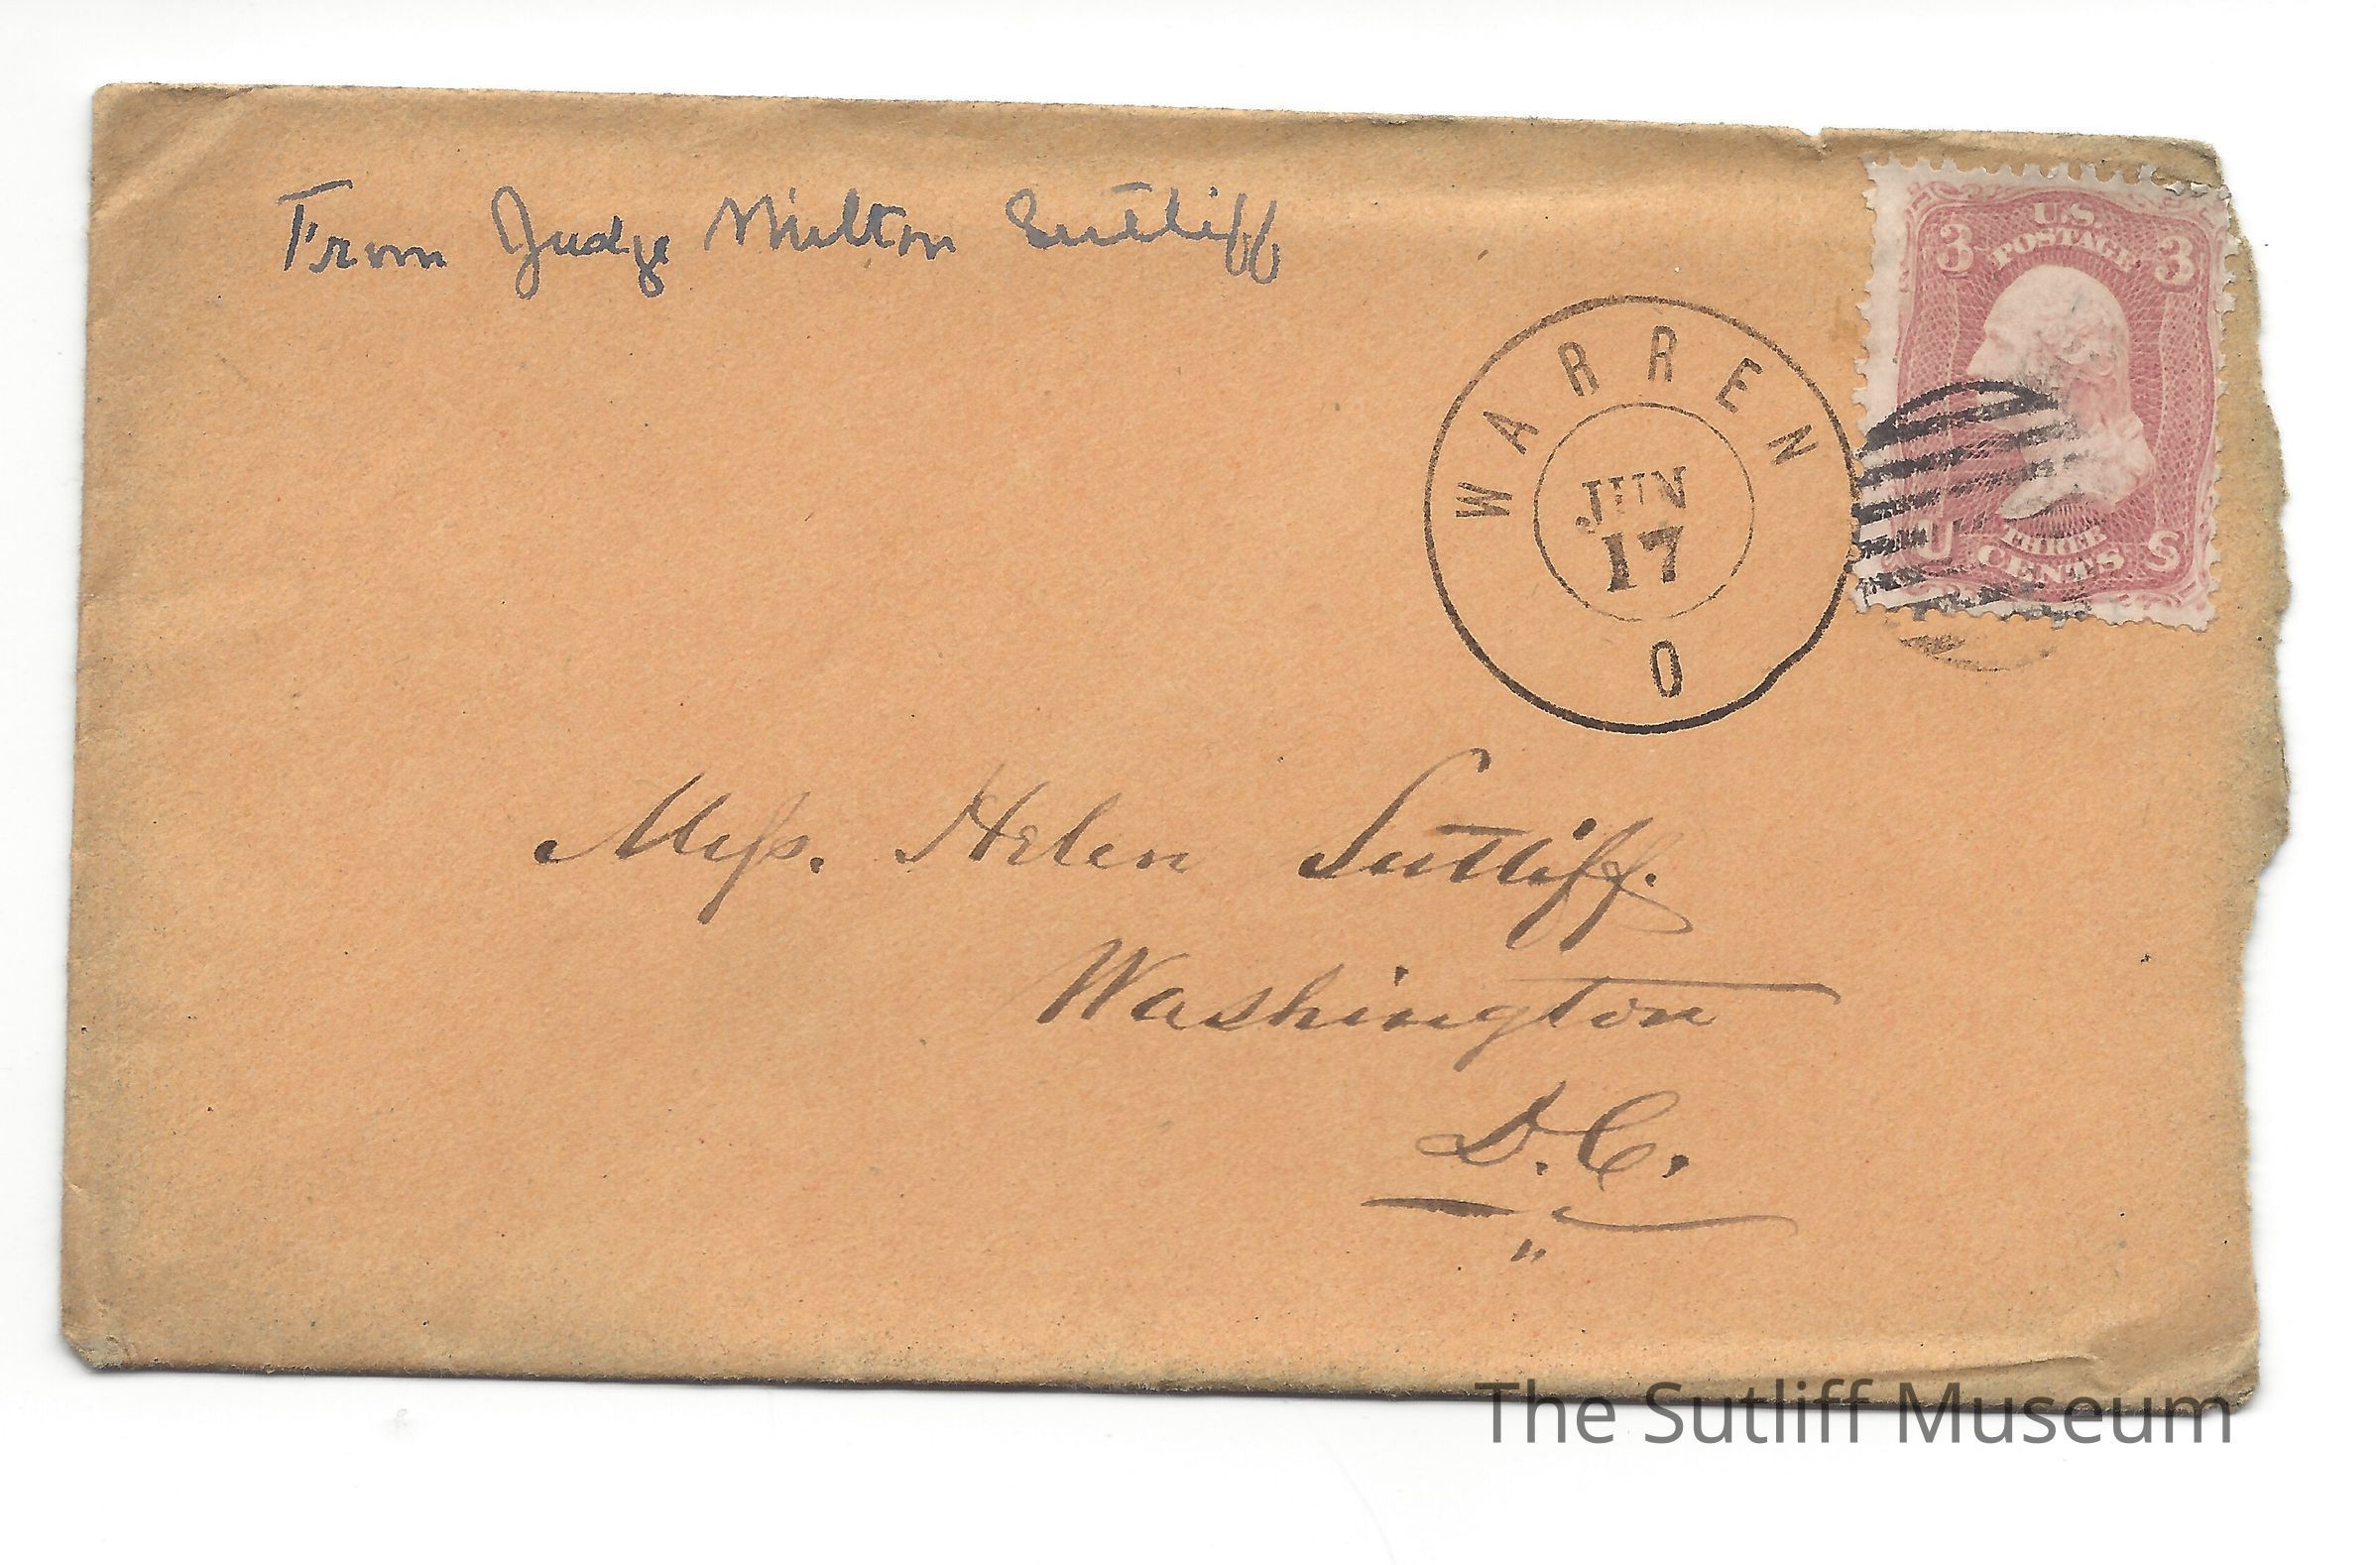 From Judge Milton Sutliff
U.S.
POSTAGE
3 3
WARREN
JUN
17
O
U S
THREE
CENTS
Miss. Helen Sutliff.
Washington
D.C.
The Sutliff Museum